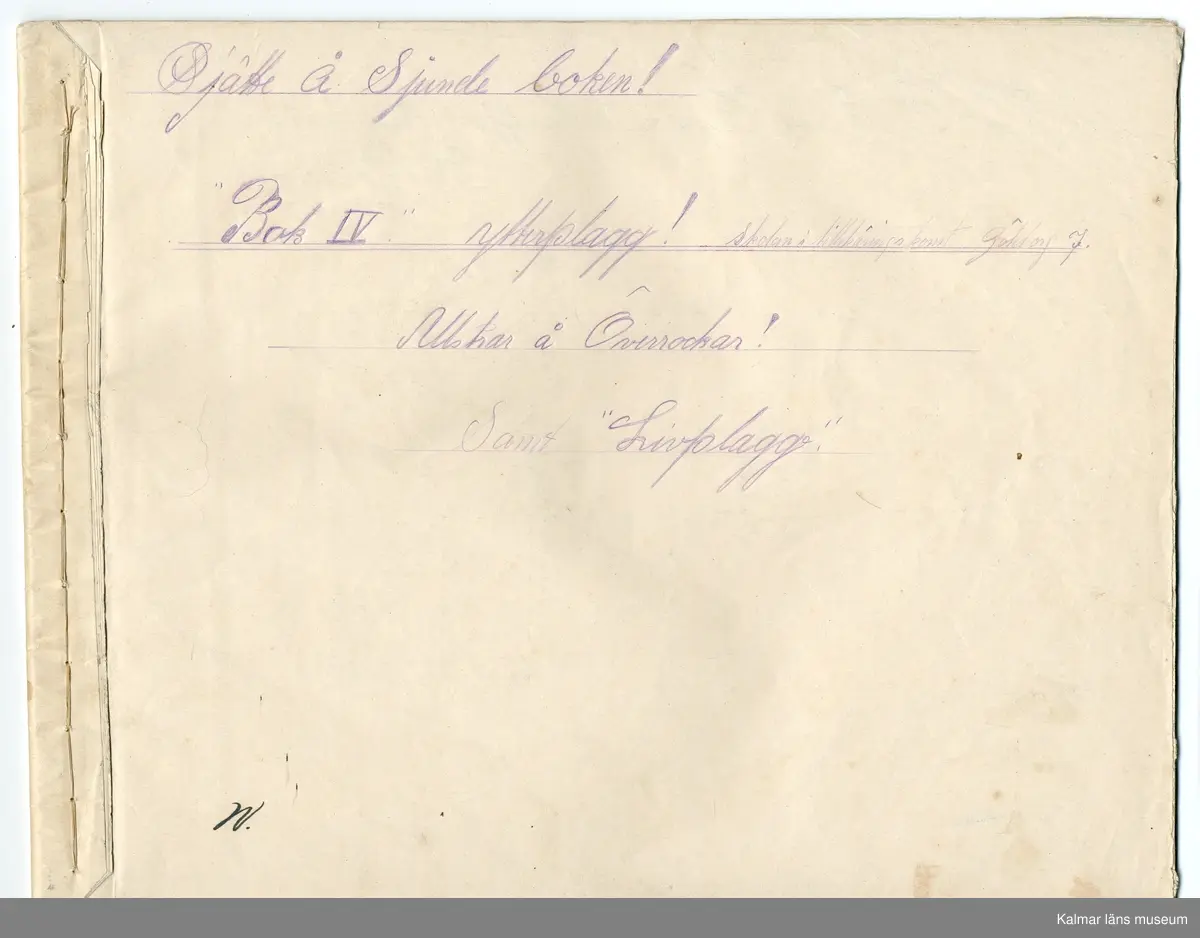 Sjätte å Sjunde boken!
"Bok IV" ytterplagg! skolan i tillskäringskonst Göteborg 7.
Ulstrar å Överrockar!
Samt "Livplagg".
N.
Kalmar läns museum